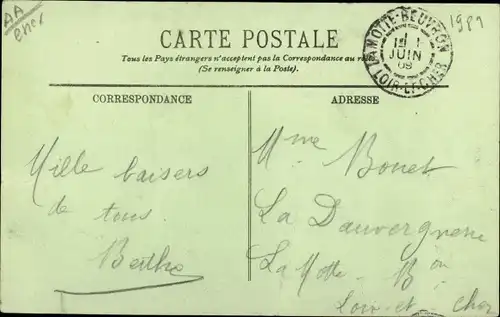 AA
cher
1981
CARTE POSTALE
Tous les Pays étrangers n'acceptent pas la Correspondance au
(Se renseigner à la Poste).
LAMOTTE-BEUVRON
JUIN
08
LOIR-ET-CHER
CORRESPONDANCE
ADRESSE
Mille baisers
de tous.
Berthe
Mme Bonet
La Dauvergnerie
La Motte - Bon
Loir-et-Cher